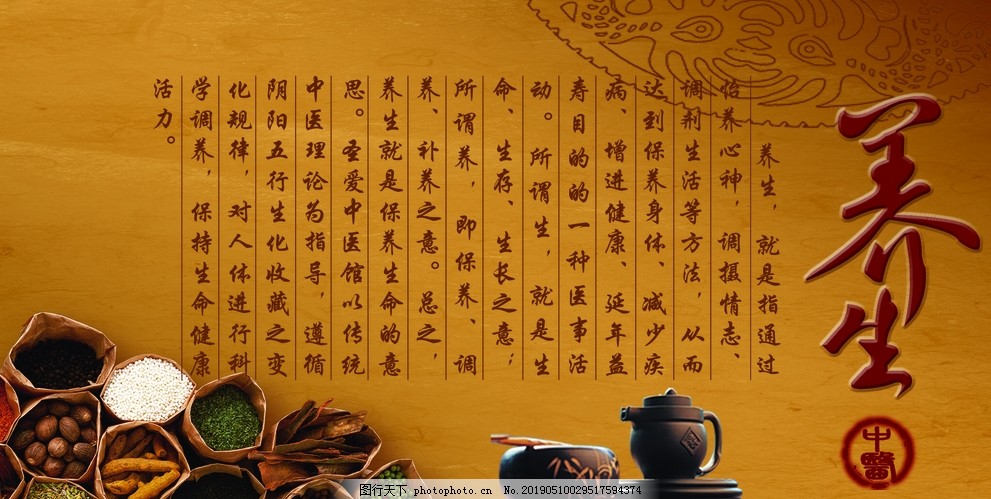 养生
中醫
养生，就是指通过
怡养心神，调摄情志、
调剂生活等方法，从而
达到保养身体、减少疾
病、增进健康、延年益
寿目的的一种医事活
动。所谓生，就是生
命、生存、生长之意；
所谓养，即保养、调
养、补养之意。总之，
养生就是保养生命的意
思。圣爱中医馆以传统
中医理论为指导，遵循
阴阳五行生化收藏之变
化规律，对人体进行科
学调养，保持生命健康
活力。
图行天下 photophoto.cn No.20190510029517594374